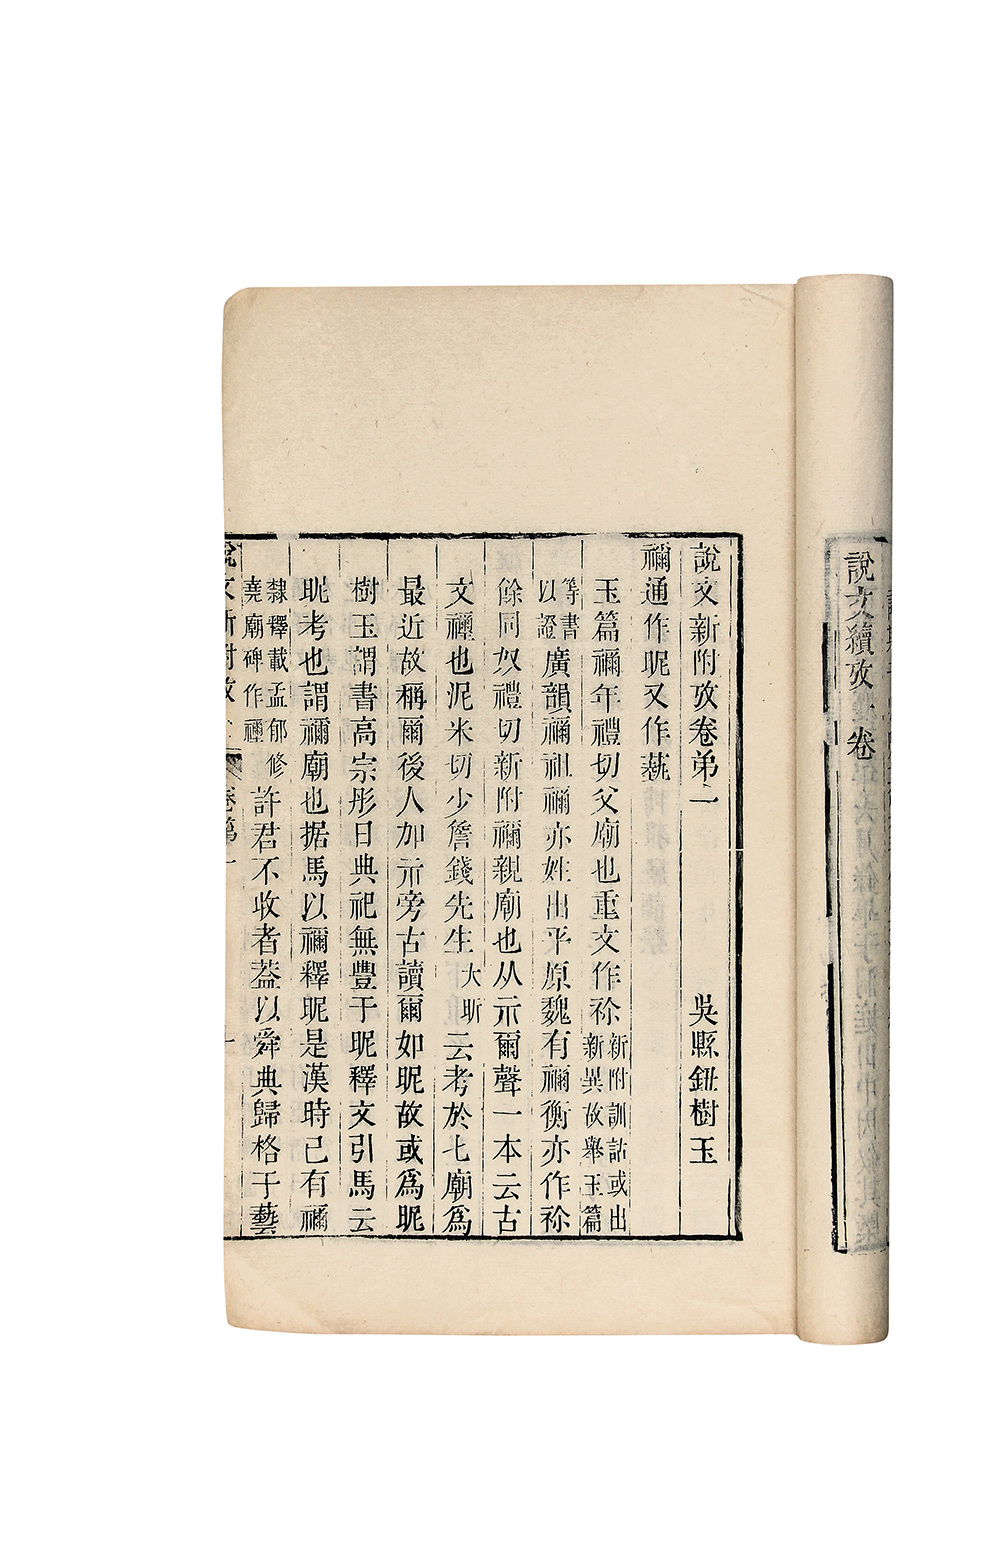 說文續攷 卷
說文新附攷卷弟一 吳縣鈕樹玉
禰通作昵又作𧙕
玉篇禰年禮切父廟也重文作祢新附訓詁或出新異故舉玉篇
等書以證廣韻禰祖禰亦姓出平原魏有禰衡亦作祢
餘同奴禮切新附禰親廟也从示爾聲一本云古
文䙾也泥米切少詹錢先生大昕云考於七廟爲
最近故稱爾後人加示旁古讀爾如昵故或爲昵
樹玉謂書高宗肜日典祀無豐于昵釋文引馬云
昵考也謂禰廟也据馬以禰釋昵是漢時已有禰
隸釋載孟郁修堯廟碑作䙾許君不收者葢以舜典歸格于藝
說文新附攷